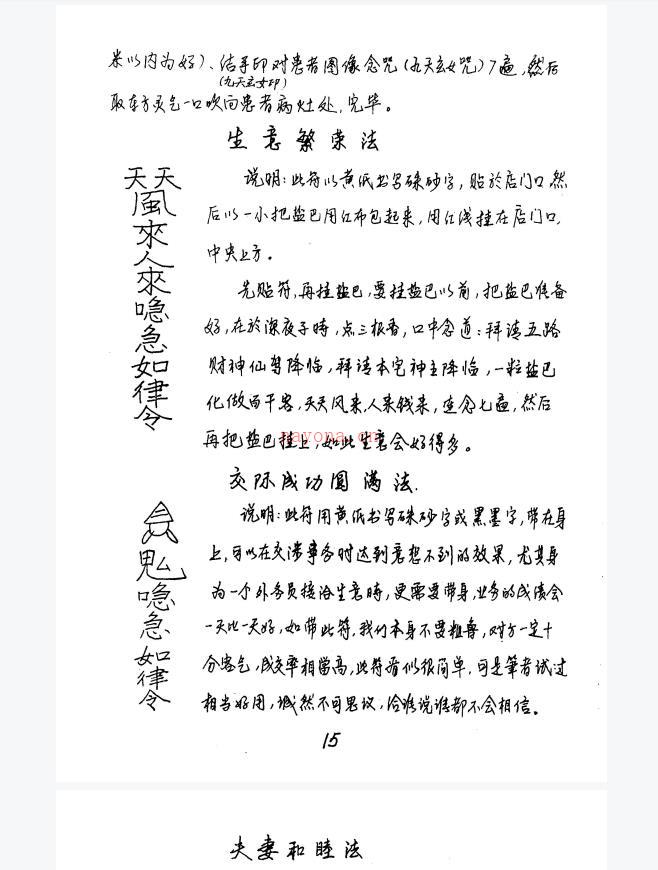 米以内为好)、结手印对患者图像念咒(九天玄女咒)7遍,然后
(九天玄女印)
取东方灵气一口吹向患者病灶处,完毕。
生意繁荣法
天天風來人來喼急如律令
说明:此符以黄纸书写硃砂字,贴於店门口,然
后以一小把盐巴用红布包起来,用红线挂在店门口,
中央上方。
先贴符,再挂盐巴,要挂盐巴以前,把盐巴准备
好,在於深夜子時,点三根香,口中念道:拜请五路
财神仙驾降临,拜请本宅神主降临,一粒盐巴
化做百千客,天天风来,人来钱来,连念七遍,然后
再把盐巴挂上,如此生意会好得多。
nayona.cn
交际成功圆满法.
鬼厶喼急如律令
说明:此符用黄纸书写硃砂字或黑墨字,带在身
上,可以在交涉事务时达到意想不到的效果,尤其身
为一个外务员接洽生意時,更需要带身,业务的成绩会
一天比一天好,如带此符,我们本身不要粗鲁,对方一定十
分客气,成交率相當高,此符看似很简单,可是筆者试过
相当好用,诚然不可思议,给谁说谁都不会相信。
15
夫妻和睦法